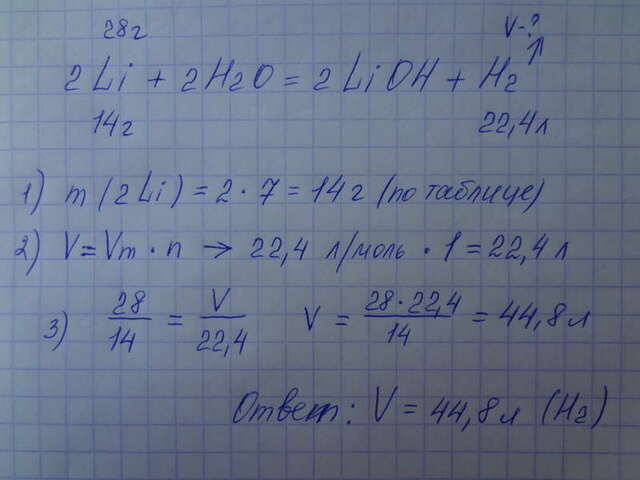 28г V-?
2Li + 2H2O = 2LiOH + H2↑
14г 22,4л
1) m (2Li) = 2 · 7 = 14г (по таблице)
2) V = Vm · n → 22,4 л/моль · 1 = 22,4 л
3) 28/14 = V/22,4 V = 28·22,4/14 = 44,8л
Ответ: V = 44,8л (H2)